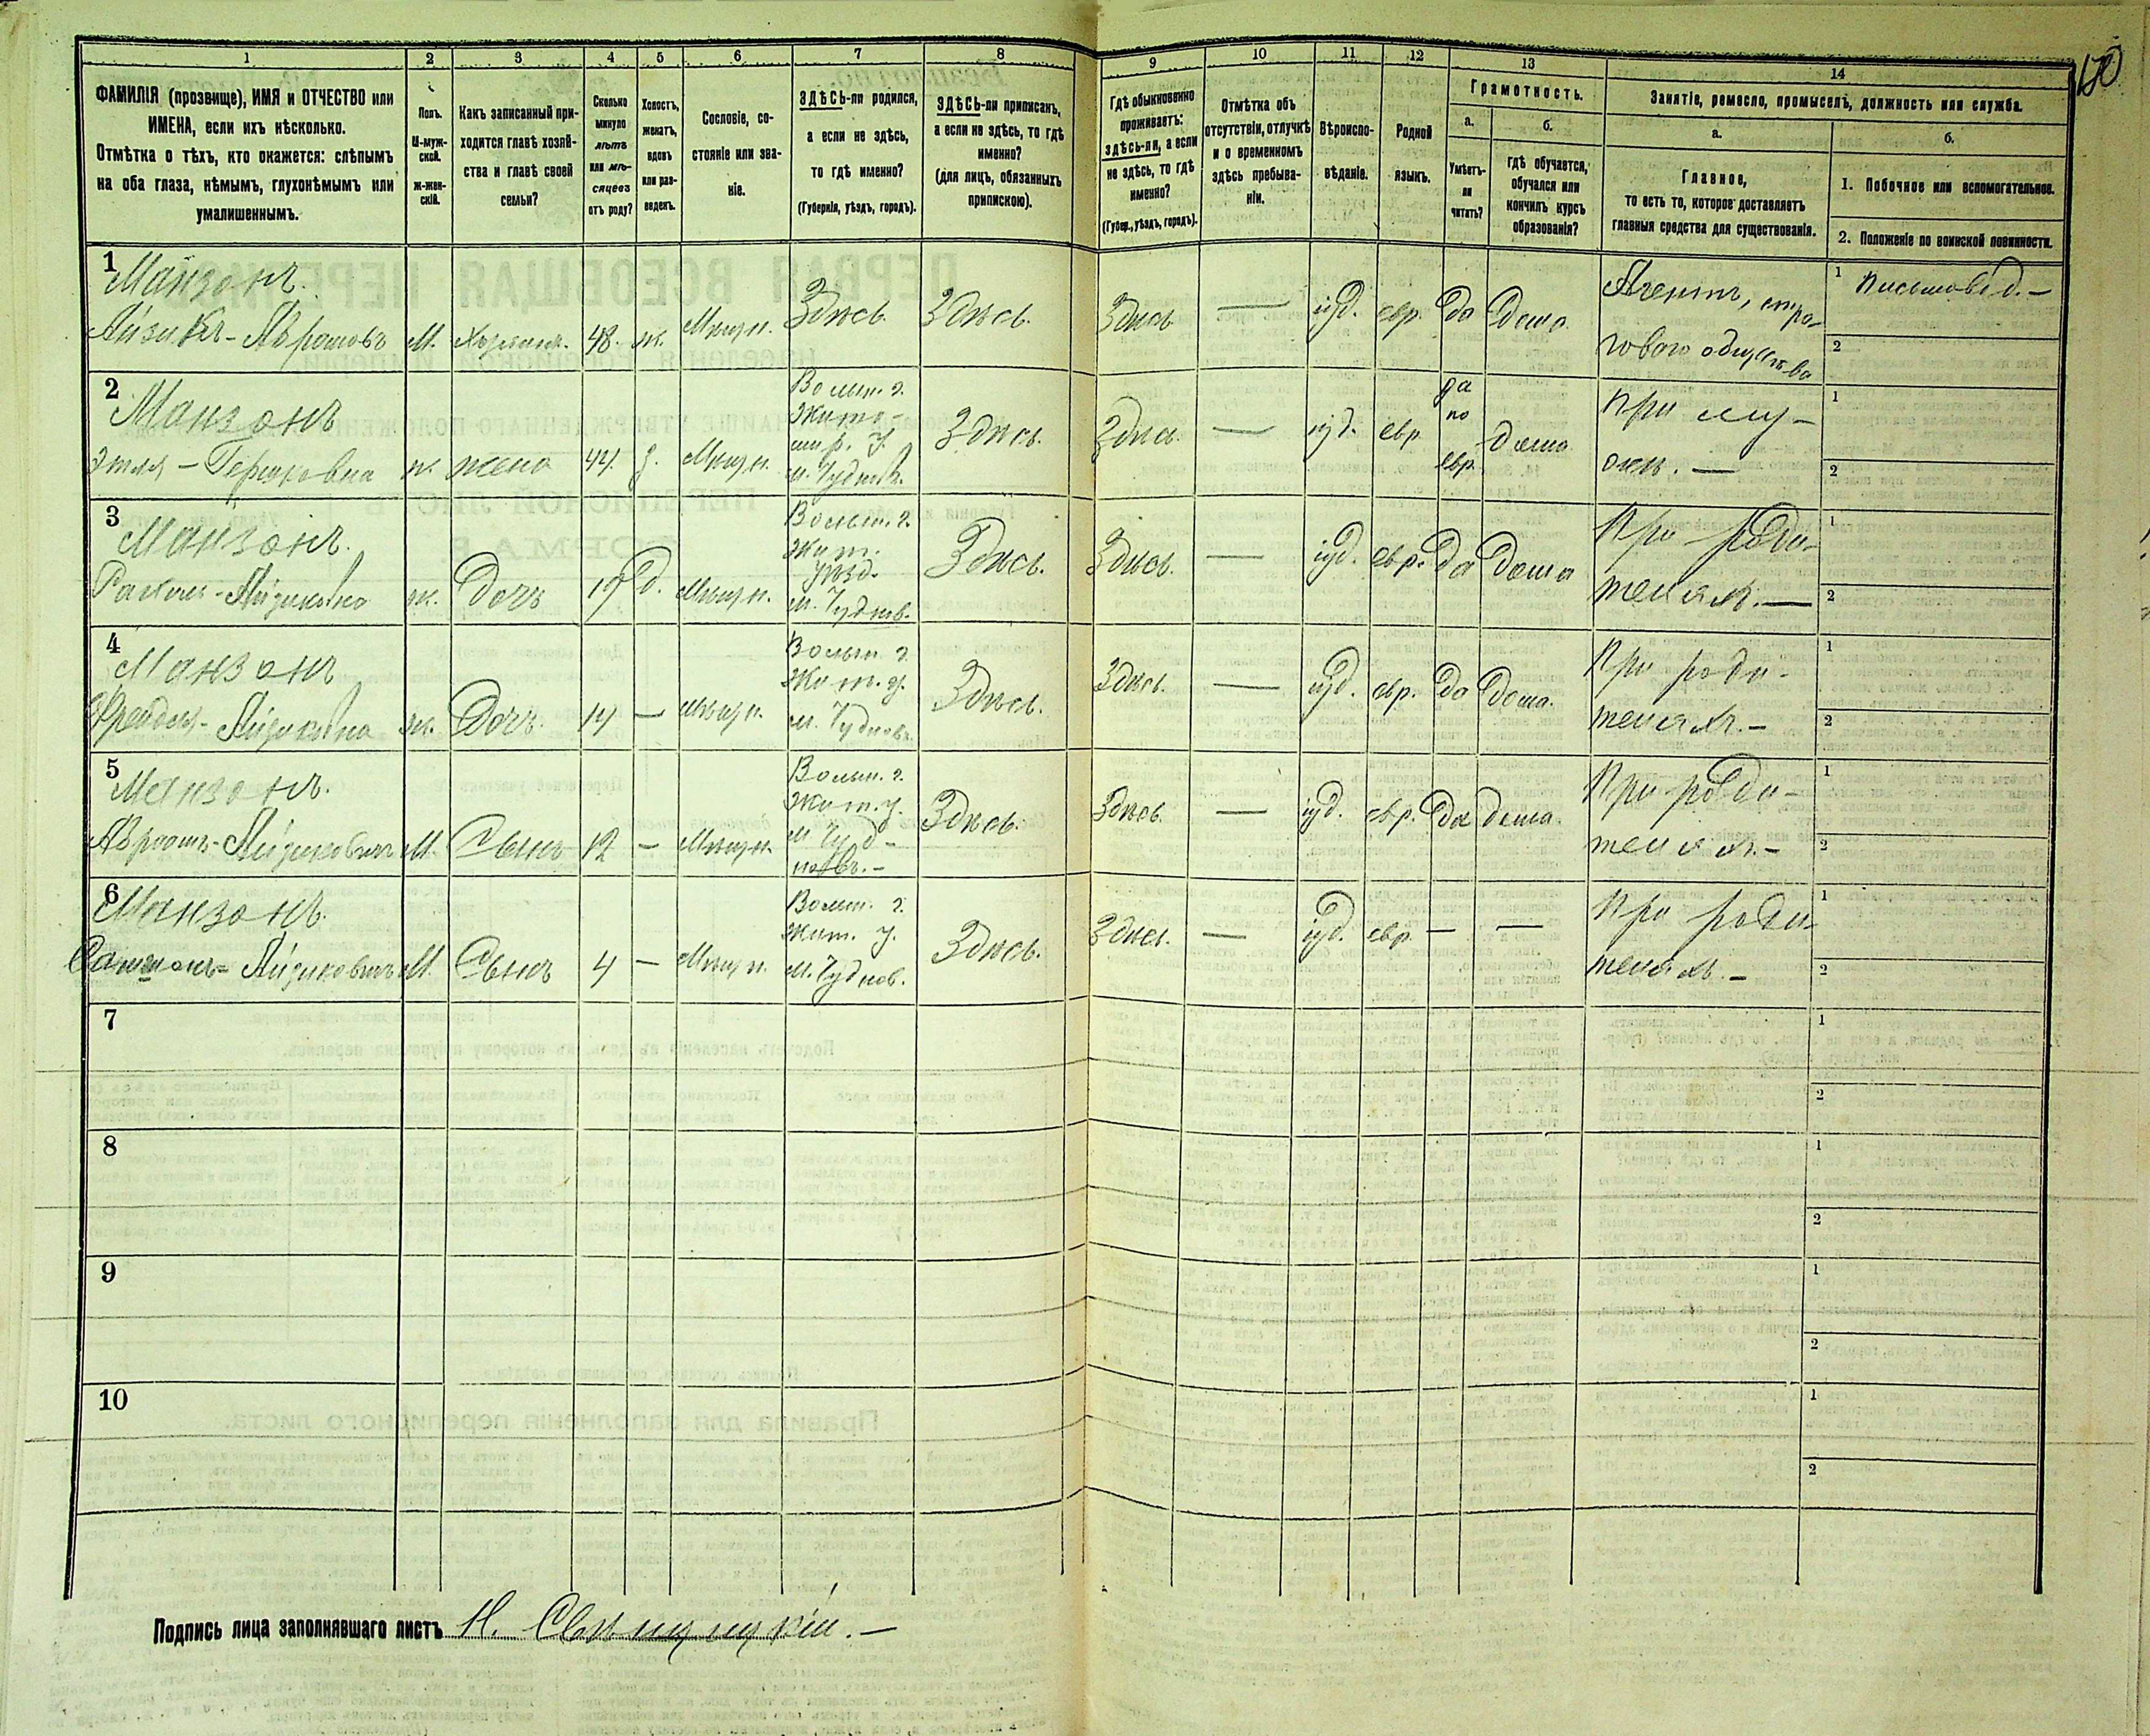 1 2 3 4 5 6 7 8 9 10 11 12 13 14
ФАМИЛІЯ (прозвище), ИМЯ и ОТЧЕСТВО или
ИМЕНА, если ихъ нѣсколько.
Отмѣтка о тѣхъ, кто окажется: слѣпымъ
на оба глаза, нѣмымъ, глухонѣмымъ или
умалишеннымъ.
Полъ.
М-муж-
ской.
ж-жен-
скій.
Какъ записанный при-
ходится главѣ хозяй-
ства и главѣ своей
семьи?
Сколько
минуло
лѣтъ
или мѣ-
сяцевъ
отъ роду?
Холостъ,
женатъ,
вдовъ
или раз-
веденъ.
Сословіе, со-
стояніе или зва-
ніе.
ЗДѢСЬ-ли родился,
а если не здѣсь,
то гдѣ именно?
(Губернія, уѣздъ, городъ).
ЗДѢСЬ-ли приписанъ,
а если не здѣсь, то гдѣ
именно?
(для лицъ, обязанныхъ
припискою).
Гдѣ обыкновенно
проживаетъ:
здѣсь-ли, а если
не здѣсь, то гдѣ
именно?
(Губер., уѣздъ, городъ).
Отмѣтка объ
отсутствіи, отлучкѣ
и о временномъ
здѣсь пребыва-
ніи.
Вѣроиспо-
вѣданіе.
Родной
языкъ.
Грамотность.
а.
Умѣетъ-
ли
читать?
б.
гдѣ обучается,
обучался или
кончилъ курсъ
образованія?
Занятіе, ремесло, промыселъ, должность или служба.
а.
Главное,
то есть то, которое доставляетъ
главныя средства для существованія.
б.
1. Побочное или вспомогательное.
2. Положеніе по воинской повинности.
150
1
Манзонъ.
Айзикъ-Аврамовъ М. Хозяинъ. 48. ж. Мѣщан. Здѣсь. Здѣсь. Здѣсь — іуд. евр. да дома
Агентъ, стра-
хового общества
1 Письмовод.-
2
2
Манзонъ
Этля - Гершковна ж. жена 42 з. Мѣщн.
Волын. г.
Жито-
мир. у.
м. Чудновъ.
Здѣсь. Здѣсь. — іуд. евр
да
по
евр.
дома
При му-
жѣ. —
1
2
3
Манзонъ.
Рахиль-Айзиковна ж. Дочь 19 д. Мѣщн.
Волын. г.
Жит.
уѣзд.
м. Чуднов.
Здѣсь. Здѣсь. — іуд. евр. да дома
При роди-
теляхъ. —
1
2
4
Манзонъ
Фрейдля-Айзиковна ж. Дочь. 14 — мѣщн.
Волын. г.
Жит. у.
м. Чудновъ
Здѣсь. Здѣсь. — іуд. евр. да дома.
При роди-
теляхъ. -
1
2
5
Манзонъ.
Авраамъ-Айзиковичъ М. Сынъ 12 — Мѣщн.
Волын. г.
Жит. у.
м Чуд-
новъ. -
Здѣсь. Здѣсь. — іуд. евр. да дома.
При роди-
теляхъ. -
1
2
6
Манзонъ.
Айзиковичъ М. Сынъ 4 — Мѣщн.
Волын. г.
Жит. у.
м. Чуднов.
Здѣсь. Здѣсь. — іуд. евр. — —
При роди-
теляхъ. -
1
2
7
1
2
8
1
2
9
1
2
10
1
2
Подпись лица заполнявшаго листъ Н.